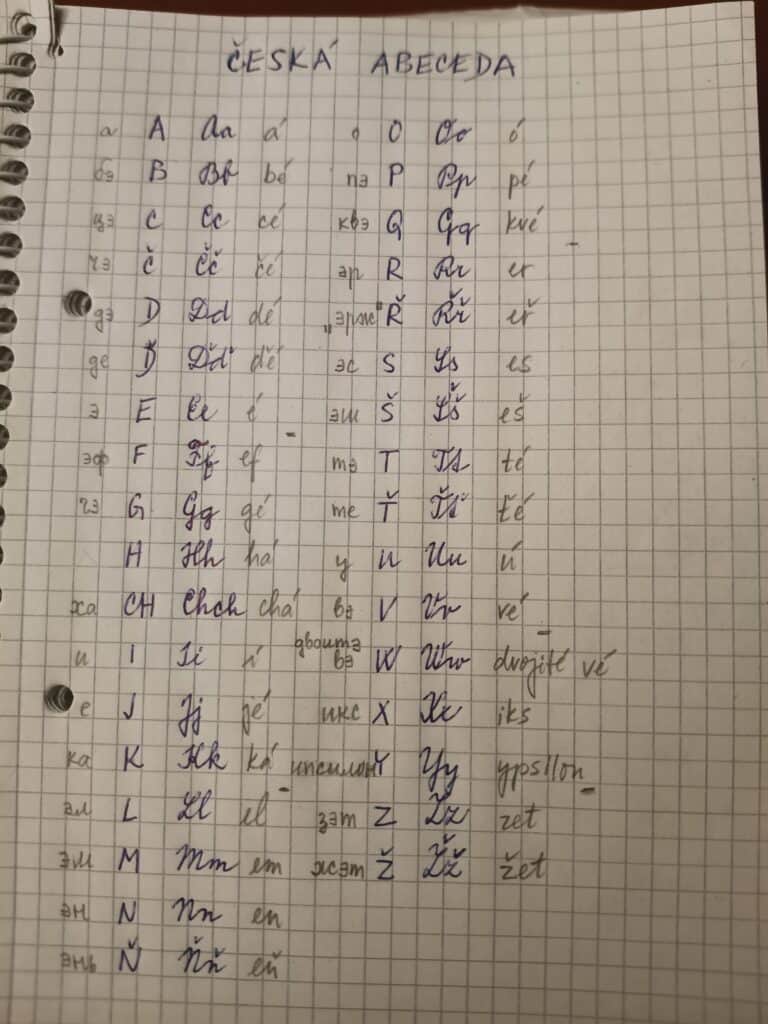 ČESKÁ ABECEDA
а A Aa á о O Oo ó
бэ B Bb bé пэ P Pp pé
цэ C Cc cé квэ Q Qq kvé
чэ Č Čč čé эр R Rr er
дэ D Dd dé „эрж" Ř Řř eř
де Ď Ďď ďé эс S Ss es
э E Ee é эш Š Šš eš
эф F Ff ef тэ T Tt té
гэ G Gg gé те Ť Ťť ťé
H Hh há у U Uu ú
ха CH Chch chá вэ V Vv vé
и I Ii í двоитэ вэ W Ww dvojité vé
е J Jj jé икс X Xx iks
ка K Kk ká ипсилон Y Yy ypsilon
эл L Ll el зэт Z Zz zet
эм M Mm em жэт Ž Žž žet
эн N Nn en
энь Ň Ňň eň